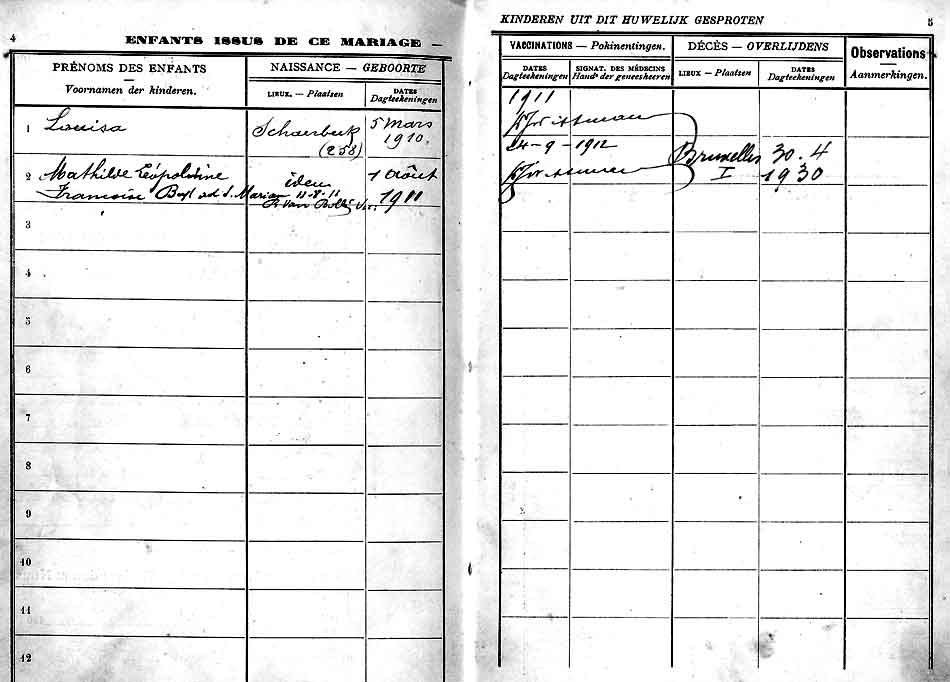 4
ENFANTS ISSUS DE CE MARIAGE —
PRÉNOMS DES ENFANTS
—
Voornamen der kinderen.
NAISSANCE — GEBOORTE
LIEUX. — Plaatsen
DATES
Dagteekeningen
1
Louisa
Schaerbeek
(258)
5 Mars
1910.
2
Mathilde Léopoldine
idem
1 Août
Francoise Bapt ad S. Mariam 11-8-11
1911
R. Van
3
4
5
6
7
8
9
10
11
12
KINDEREN UIT DIT HUWELIJK GESPROTEN
5
VACCINATIONS — Pokinentingen.
DATES
Dagteekeningen
SIGNAT. DES MÉDECINS
Handt der geneesheeren
DÉCÈS — OVERLIJDENS
LIEUX — Plaatsen
DATES
Dagteekeningen
Observations
—
Aanmerkingen.
1911
24-9-1912
Bruxelles 30.4
I 1930